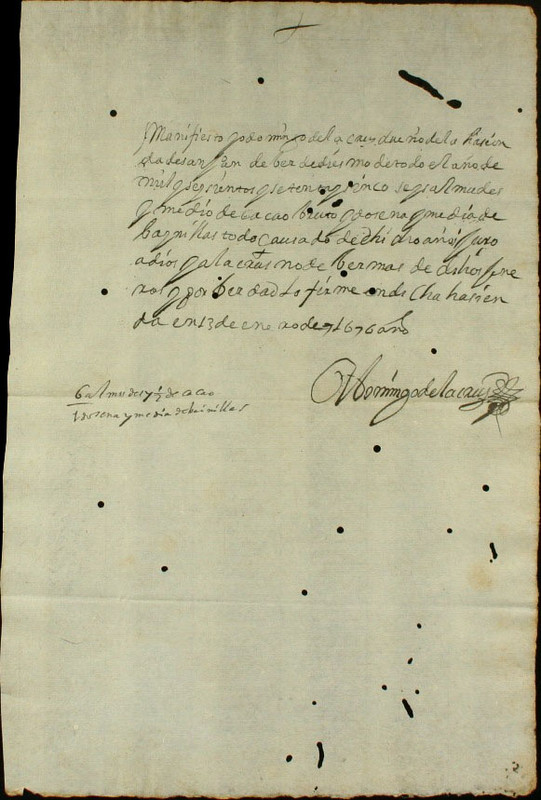 Manifiesto yo domingo de la cruz dueño de la hasien
da de san juan de ber de diesmo de todo el año de
mil y seyscientos y setenta y sinco seys almudes
y medio de cacao bruto y dosena y media de
baynillas todo causado de dicho año y juro
a dios y a la crus no deber mas de dichos gene
ros y por berdad lo firme en dicha hasien
da en 13 de enero de 1676 años
Domingo de la cruz
6 almudes y 1/2 de cacao
1 dosena y media de bainillas